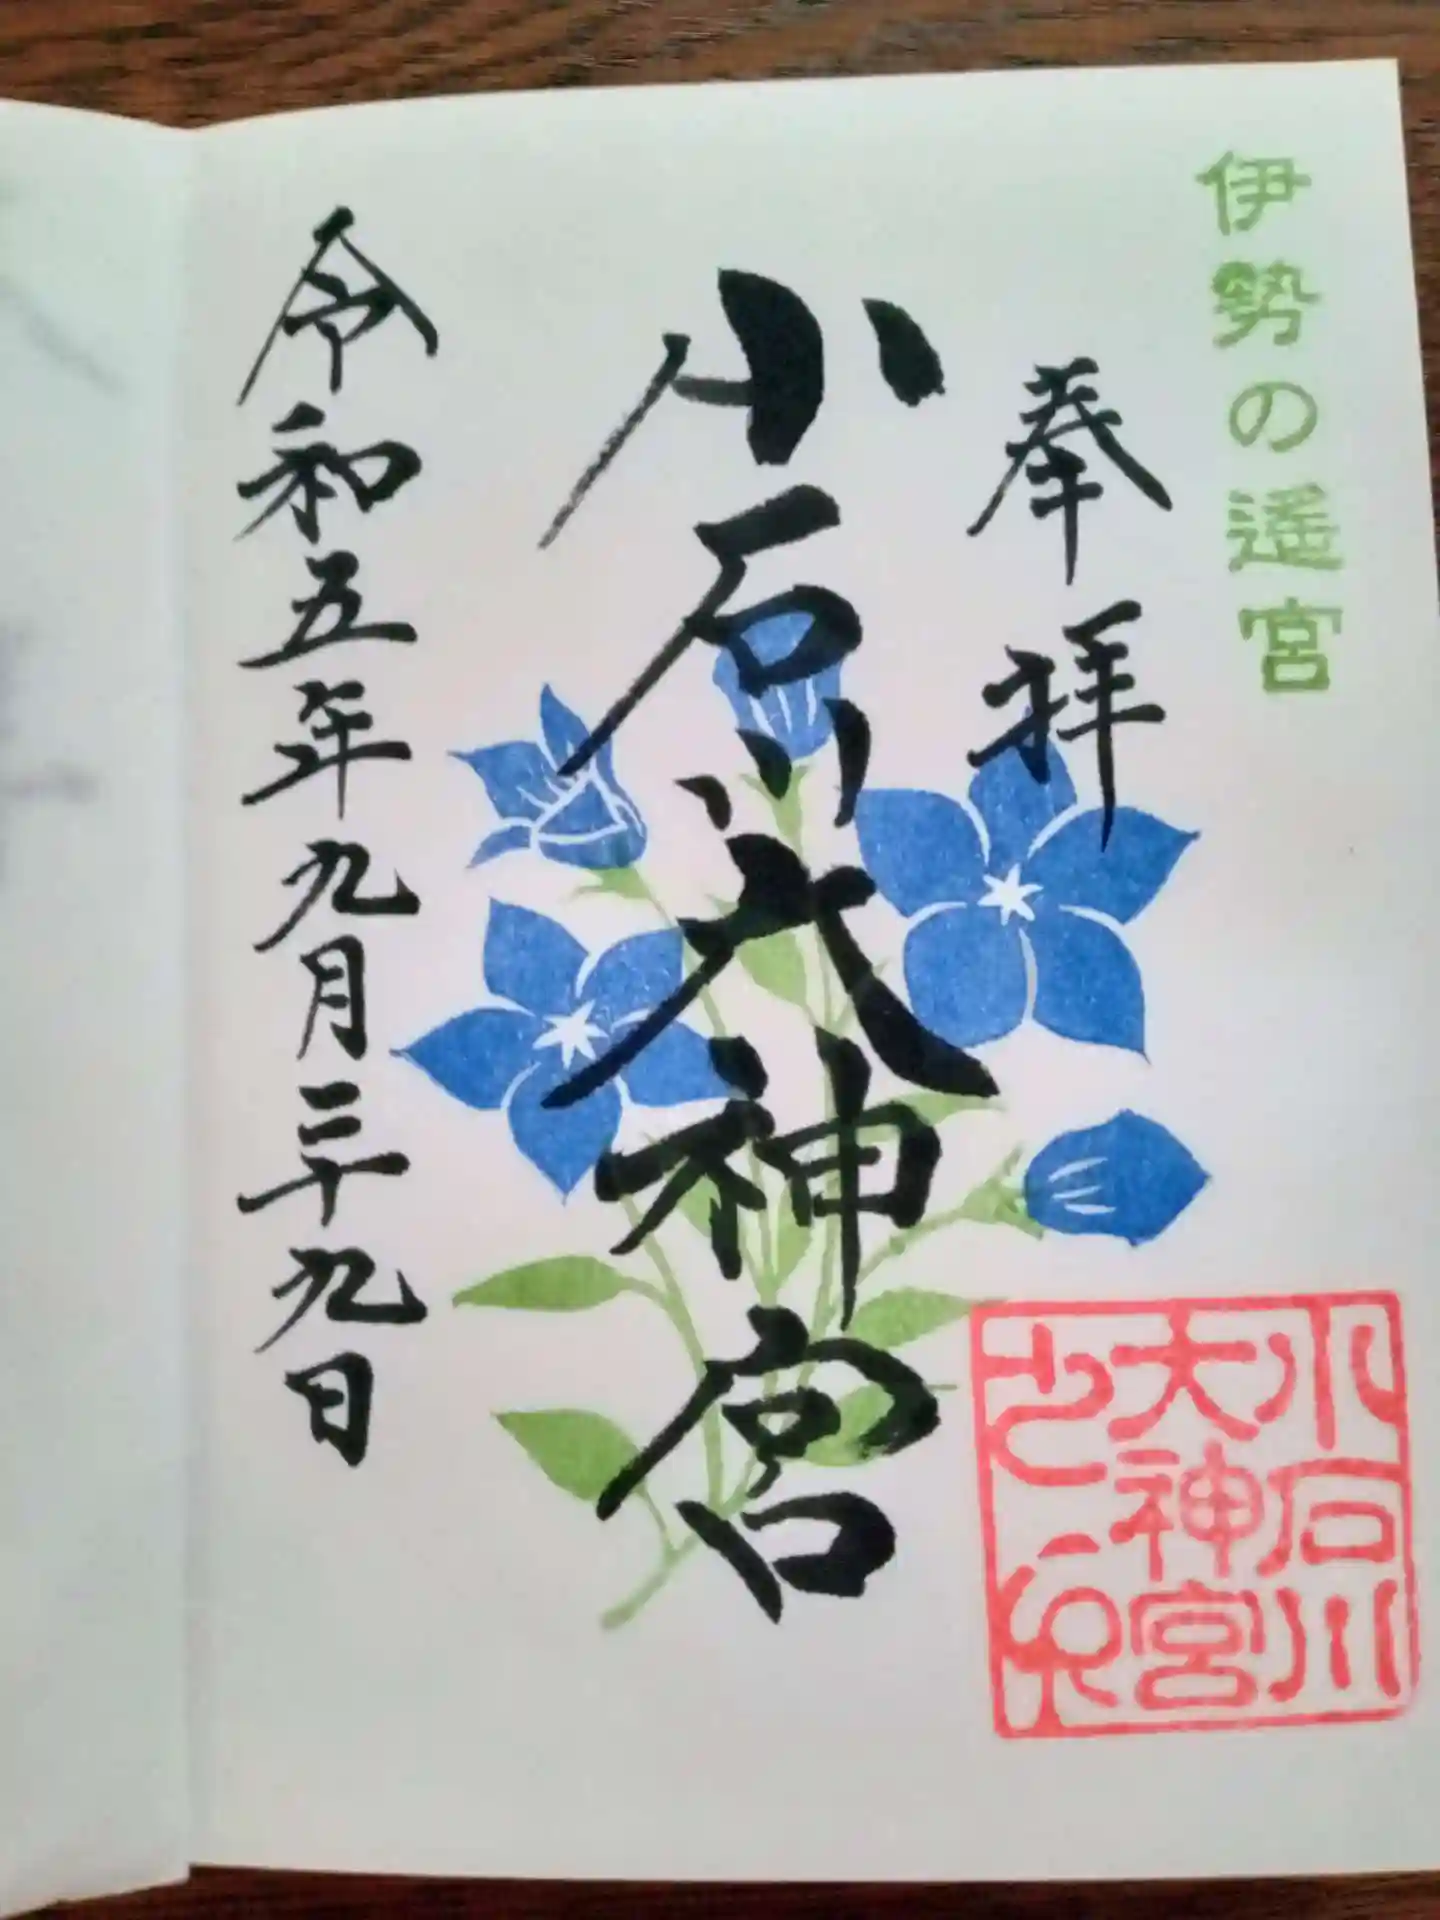 伊勢の遥宮
奉拝
小石川大神宮
令和五年九月二十九日
小石川
大神宮
之印